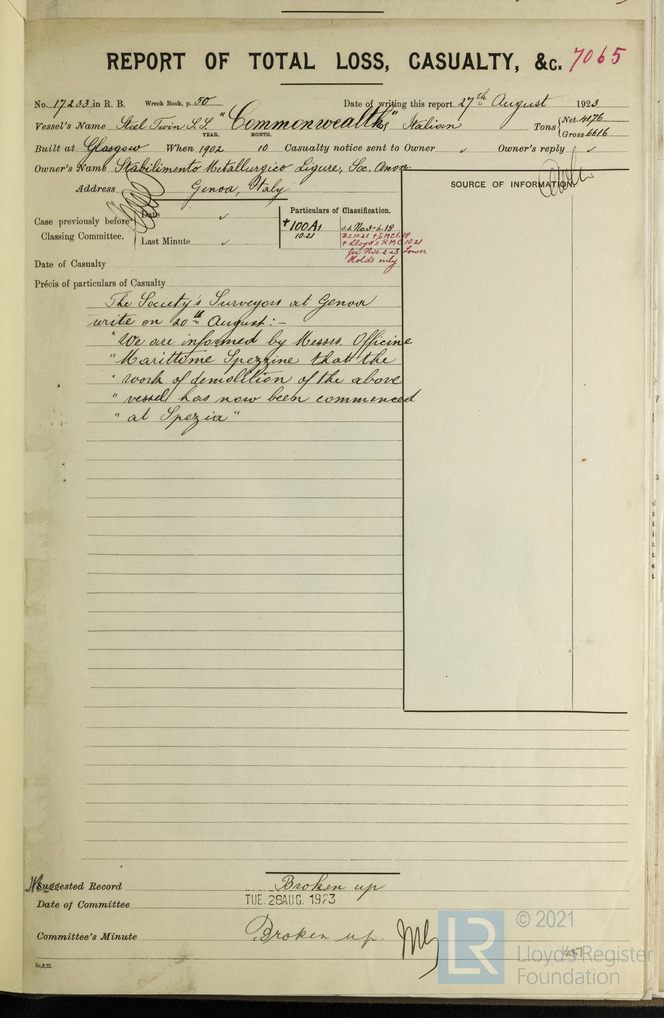 REPORT OF TOTAL LOSS, CASUALTY, &c. 7065
No. 17233 in R. B. Wreck Book, p. 50 Date of writing this report 27th August 1923
Vessel's Name Steel Twin S.S. "Commonwealth" Italian Tons { Net 4176
Gross 6616
YEAR. MONTH.
Built at Glasgow When 1902 10 Casualty notice sent to Owner ✓ Owner's reply ✓
Owner's Name Stabilimento Metallurgico Ligure, Soc. Anon.
Address Genoa, Italy
SOURCE OF INFORMATION.
Case previously before
Classing Committee.
Date ✓
Last Minute ✓
Particulars of Classification.
+100A1
10.21
s.s. No.3-6.18
B.S.10.21 + L.M.C. 6.18
+ Lloyd's R M C 10.21
for Nos. 2 & 3 Lower
Holds only
Date of Casualty
Précis of particulars of Casualty
The Society's Surveyors at Genoa
write on 20th August:-
"We are informed by Messrs. Officine
"Marittime Spezzine that the
" work of demolition of the above
" vessel has now been commenced
" at Spezia"
Suggested Record Broken up
Date of Committee TUE. 28 AUG. 1923
Committee's Minute Broken up.
© 2021
LR Lloyd's Register
Foundation